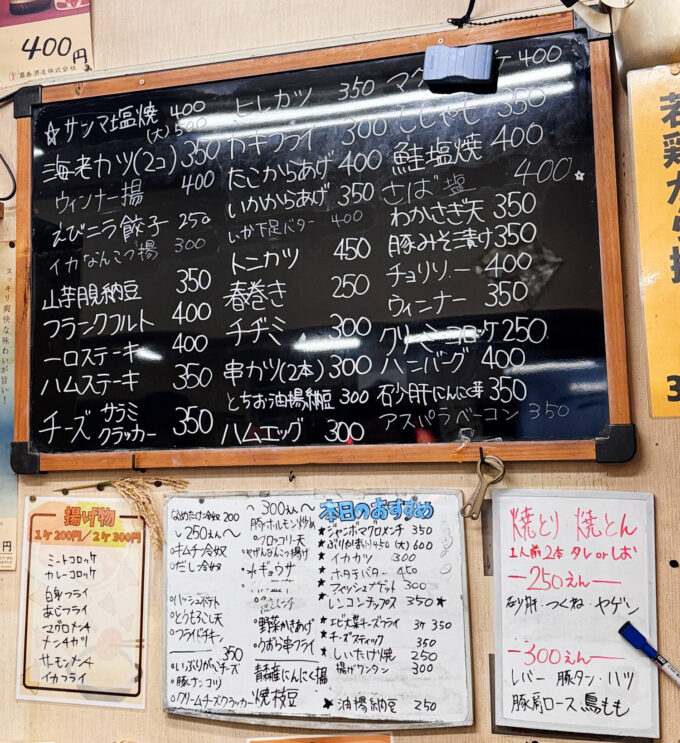 400円
霧島酒造株式会社
☆サンマ塩焼 400
(大)500
海老カツ(2コ) 350
ウィンナー揚 400
えびニラ餃子 250
イカなんこつ揚 300
山芋月見納豆 350
フランクフルト 400
一口ステーキ 400
ハムステーキ 350
チーズ サラミ クラッカー 350
ヒレカツ 350
カキフライ 300
たこからあげ 400
いかからあげ 350
いか下足バター 400
トンカツ 450
春巻き 250
チヂミ 300
串カツ(2本) 300
とちお油揚納豆 300
ハムエッグ 300
400
ししゃも 350
鮭塩焼 400
さば塩 400
わかさぎ天 350
豚みそ漬け 350
チョリソー 400
ウィンナー 350
クリームコロッケ 250
ハンバーグ 400
砂肝にんにく芽 350
アスパラベーコン 350
若鶏から揚
スッキリ爽快な味わいが旨い!
円
揚げ物
1ケ200円/2ケ300円
ミートコロッケ
カレーコロッケ
白身フライ
あじフライ
マグロメンチ
メンチカツ
サーモンメンチ
イカフライ
なめたけ冷奴 200
〜250えん〜
キムチ冷奴
だし冷奴
ハッシュポテト
とうもろこし天
フライドチキン
350
いぶりがっこチーズ
豚ナンコツ
クリームチーズクラッカー
〜300えん〜
豚ホルモン炒め
ブロッコリー天
やげんなんこつ揚げ
水ギョウザ
野菜かきあげ
うおら串フライ
青森産にんにく揚
焼枝豆
本日のおすすめ
★ジャンボマグロメンチ 350
★ぶりかま 450 (大)600
★イカカツ 300
★ホタテバター 450
★フィッシュナゲット 300
★レンコンチップス 350★
★エビ大葉チーズフライ 3ケ 350
★チーズスティック 350
★しいたけ焼 250
★揚げワンタン 300
★油揚納豆 250
焼とり 焼とん
1人前2本 タレorしお
—250えん—
砂肝・つくね・ヤゲン
—300えん—
レバー 豚タン・ハツ
豚肩ロース 鳥もも